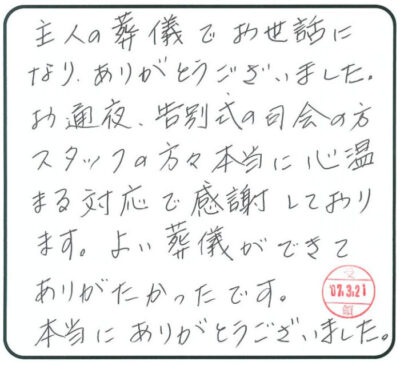 主人の葬儀でお世話に
なり、ありがとうございました。
お通夜、告別式の司会の方
スタッフの方々本当に心温
まる対応で感謝しており
ます。よい葬儀ができて
ありがたかったです。
'07.3.21
本当にありがとうございました。